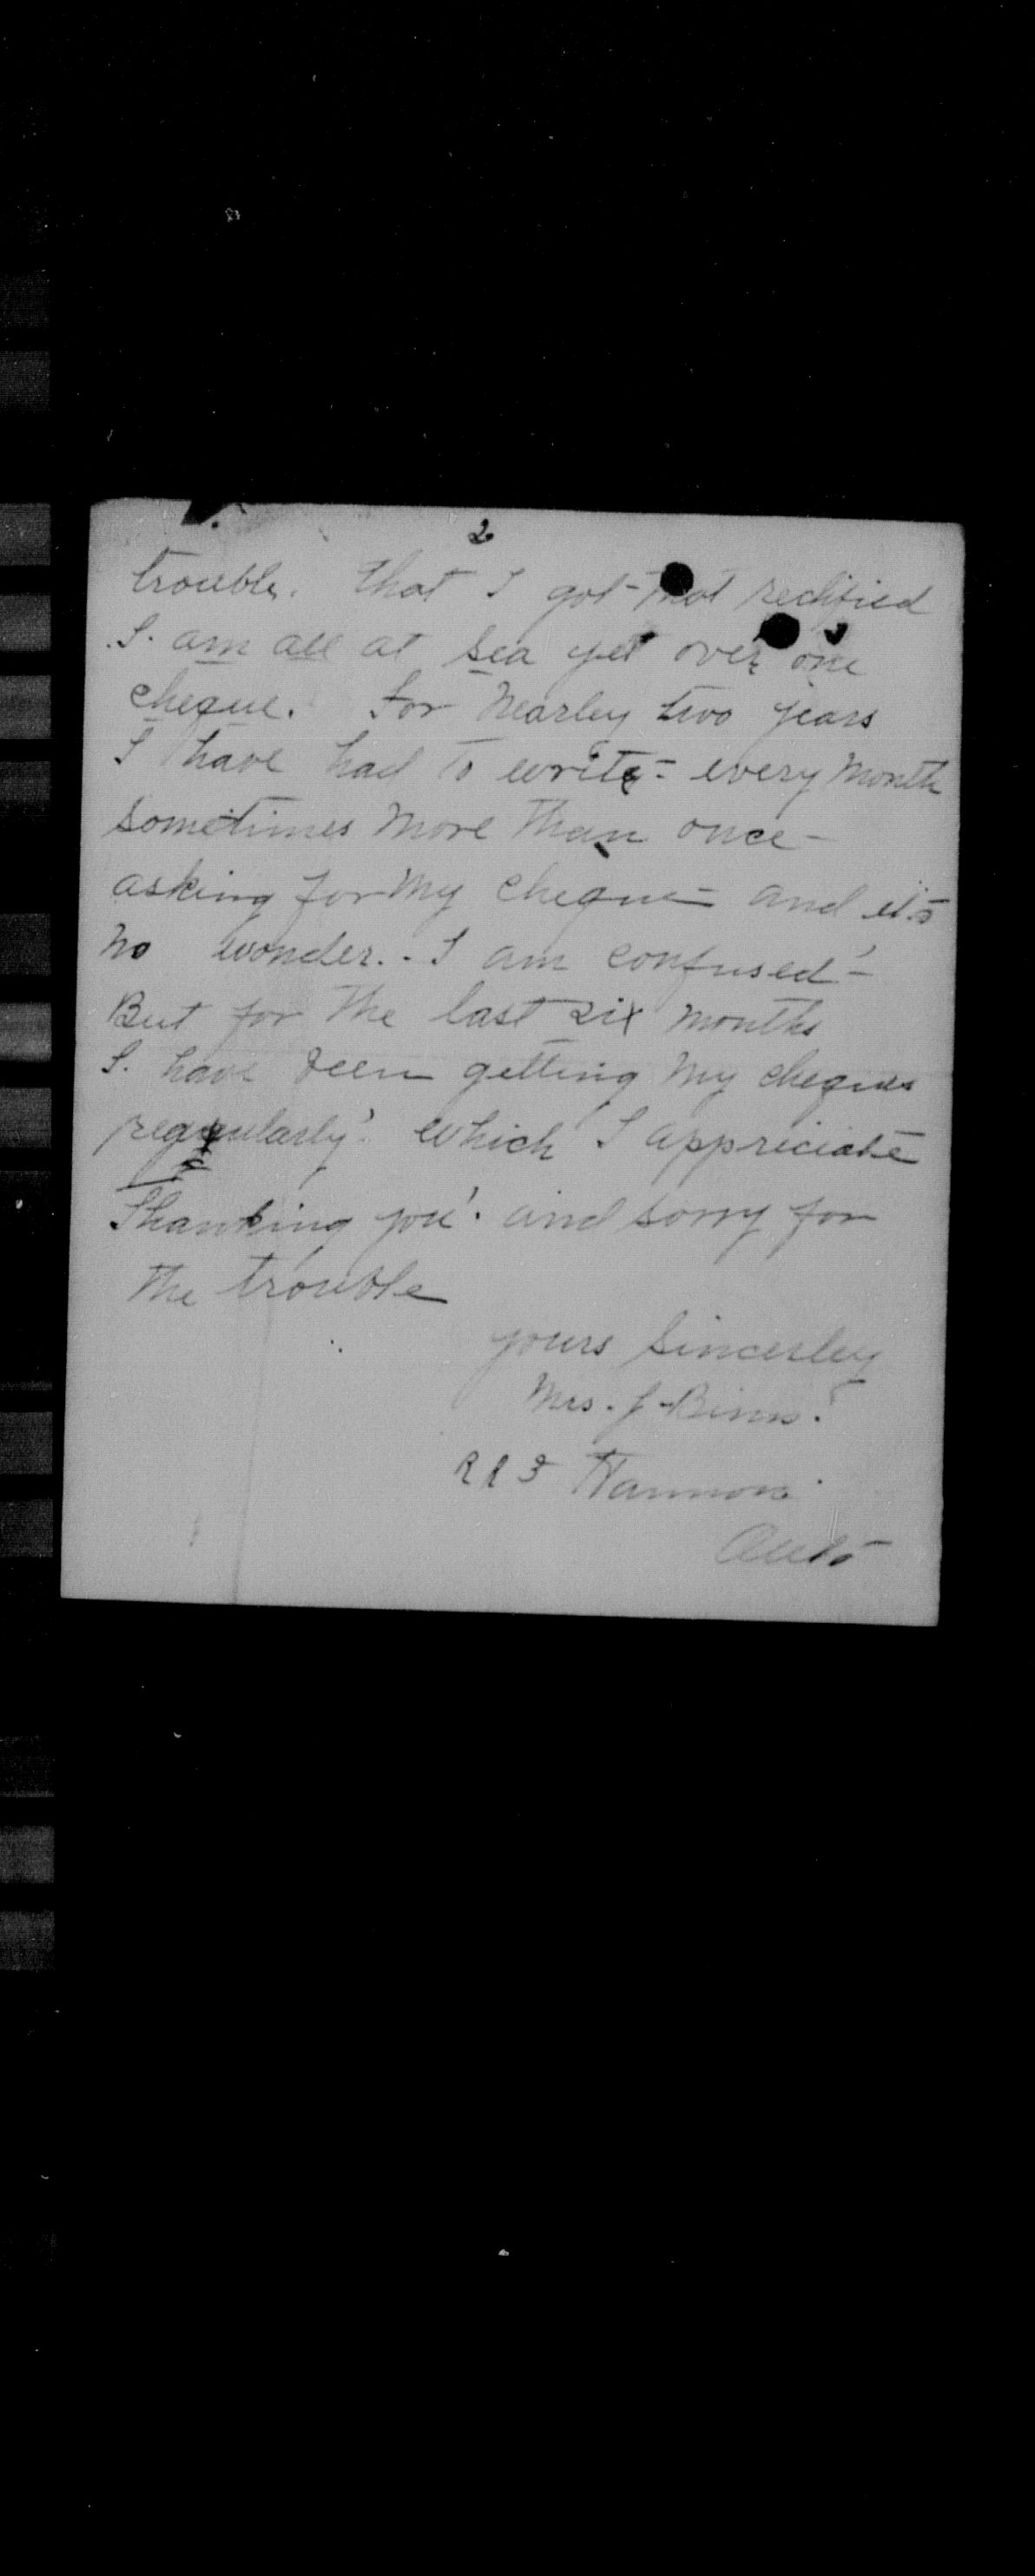 2
trouble. that I got that rectified
I. am all at sea yet over one
cheque. for nearley two years
I have had to write - every month
sometimes more than once -
asking for my cheque - and its
no wonder. - I am confused -
But for the last six months
I. have been getting my cheques
regularly. which I appreciate
Thanking you. and sorry for
the trouble
yours sincerley
Mrs. J Binns.
RR3 Hannon
Ont